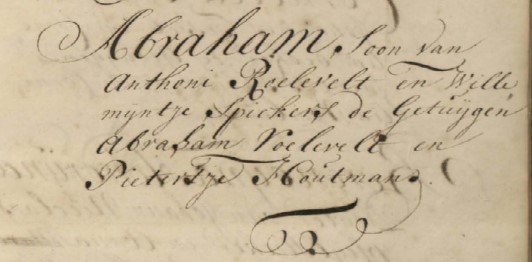 Abraham, Soon van
Anthoni Roelevelt en Wille
myntje Spickers de Getuÿgen
Abraham Roelevelt en
Pietertje Houtman.